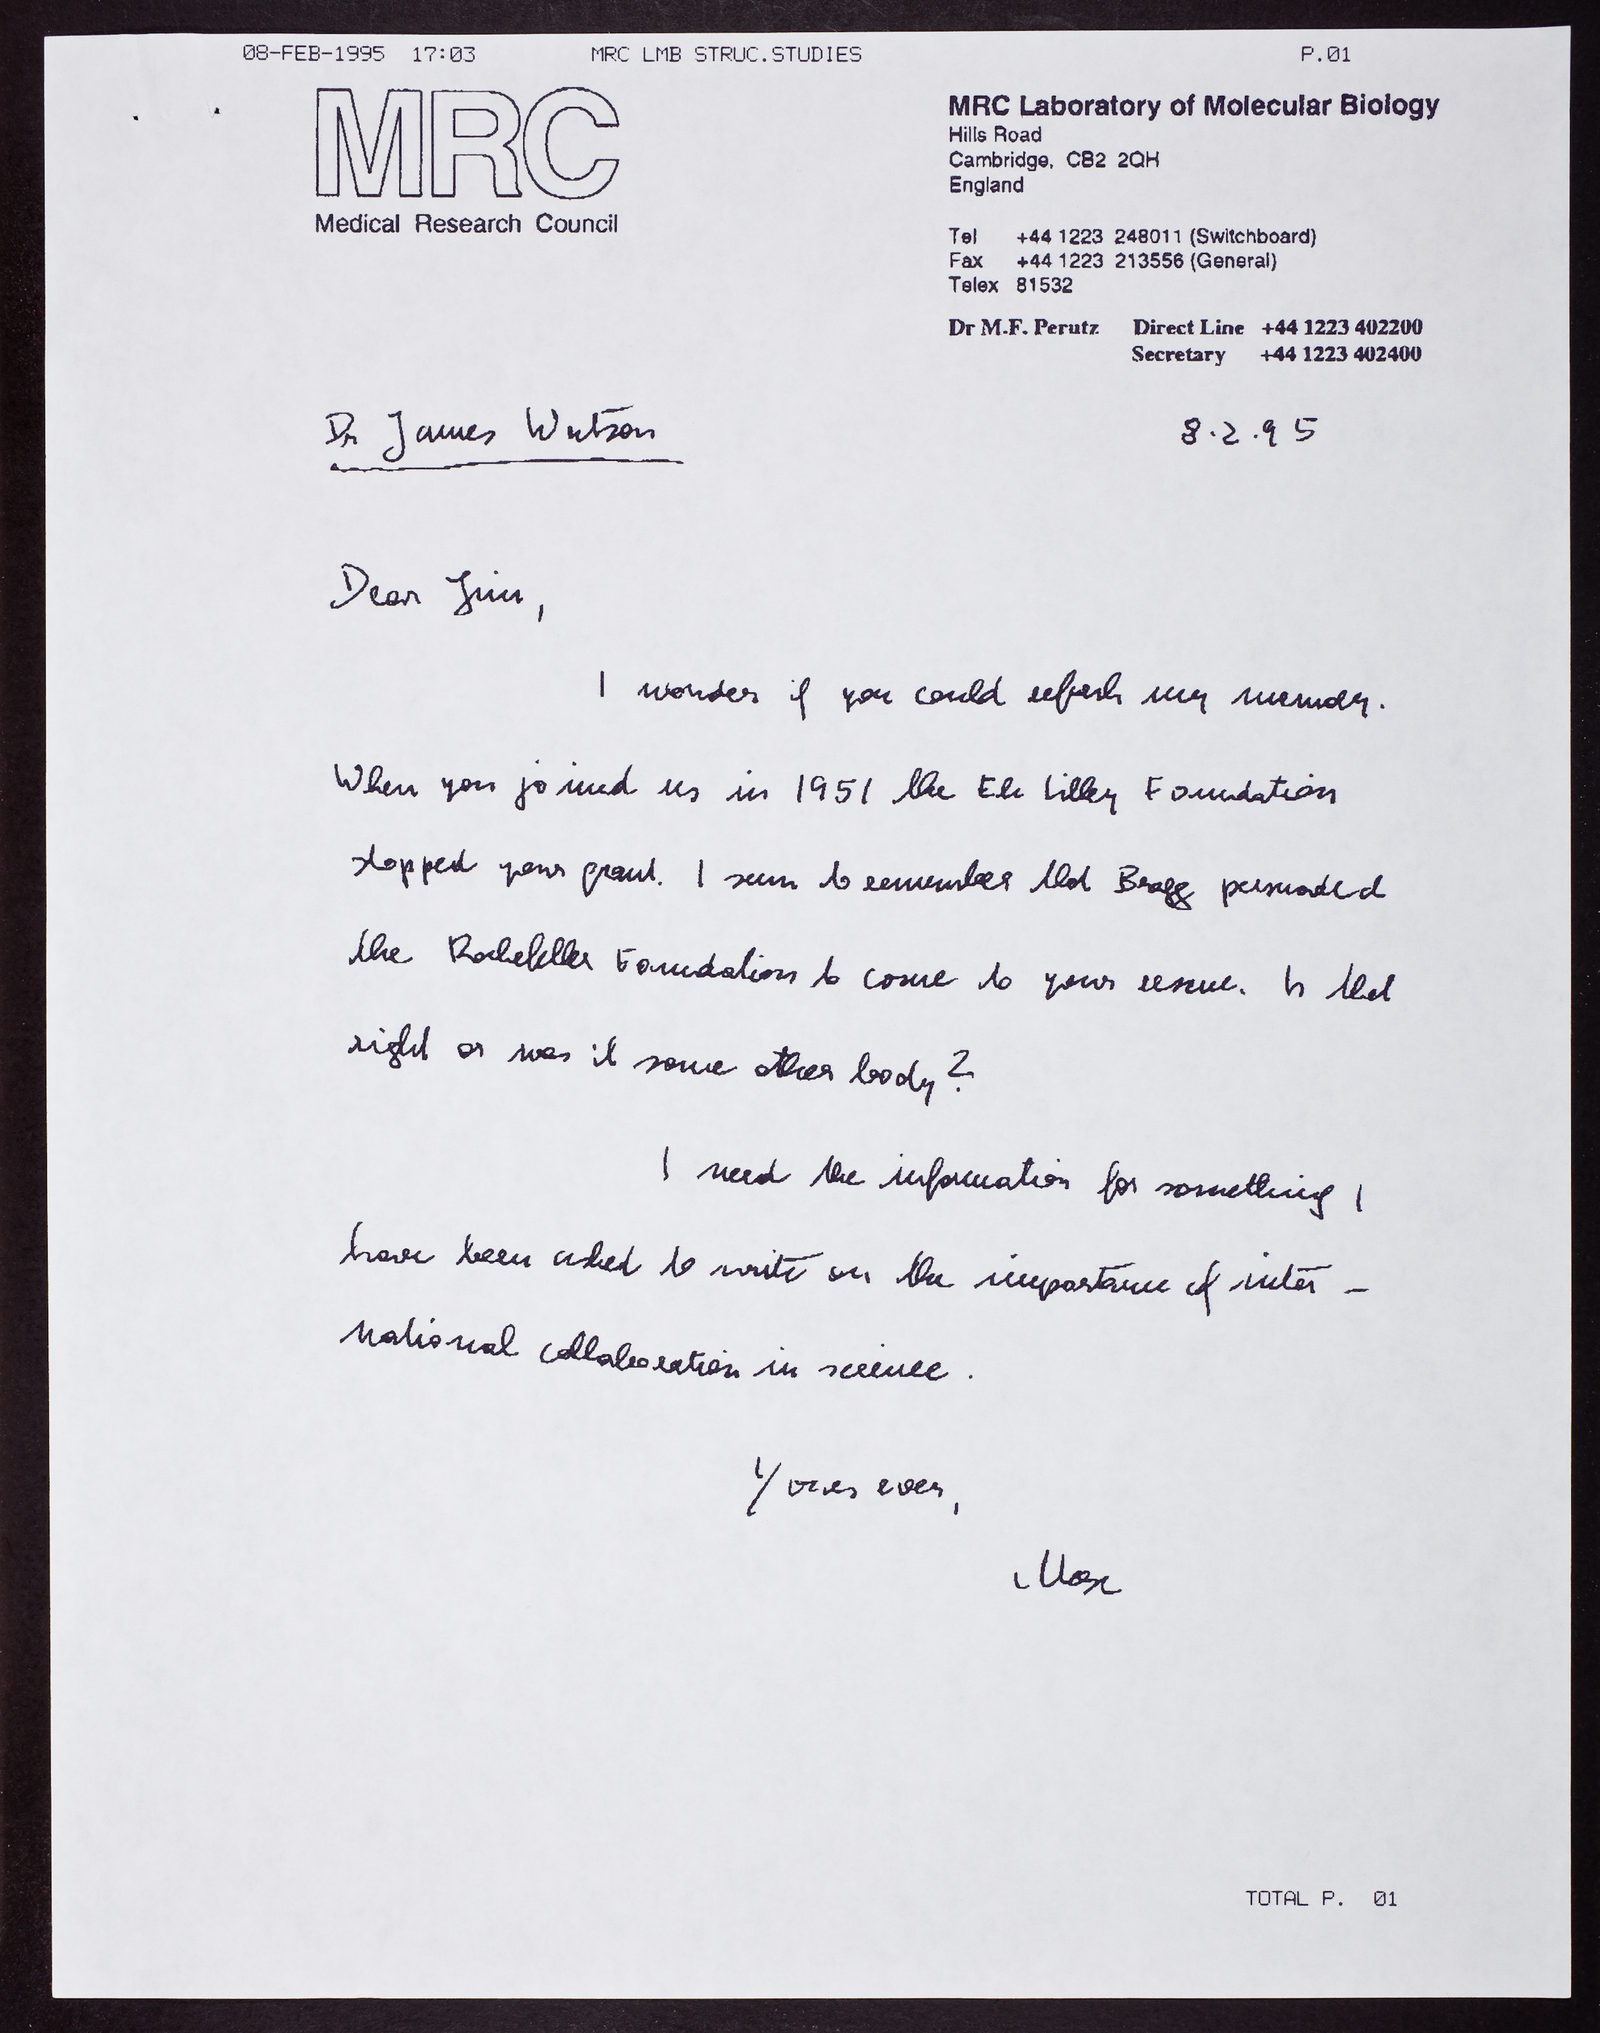 08-FEB-1995 17:03 MRC LMB STRUC.STUDIES P.01
MRC
Medical Research Council
MRC Laboratory of Molecular Biology
Hills Road
Cambridge, CB2 2QH
England
Tel +44 1223 248011 (Switchboard)
Fax +44 1223 213556 (General)
Telex 81532
Dr M.F. Perutz Direct Line +44 1223 402200
Secretary +44 1223 402400
Dr James Watson
8.2.95
Dear Jim,
I wonder if you could refresh my memory.
When you joined us in 1951 the Eli Lilley Foundation
stopped your grant. I seem to remember that Bragg persuaded
the Rockefeller Foundation to come to your rescue. Is that
right or was it some other body?
I need the information for something I
have been asked to write on the importance of inter-
national collaboration in science.
Yours ever,
Max
TOTAL P. 01